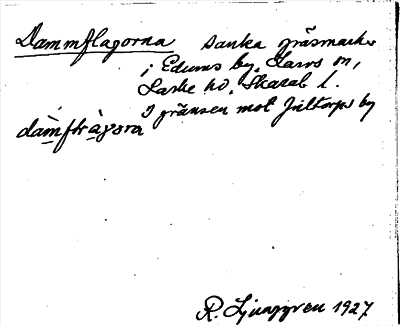 Dammflagorna sanka gräsmark
i Edums by, Larvs sn,
Laske hd. Skarab l.
I gränsen mot Jultorps by
dàmflràgora
R. Ljunggren 1927